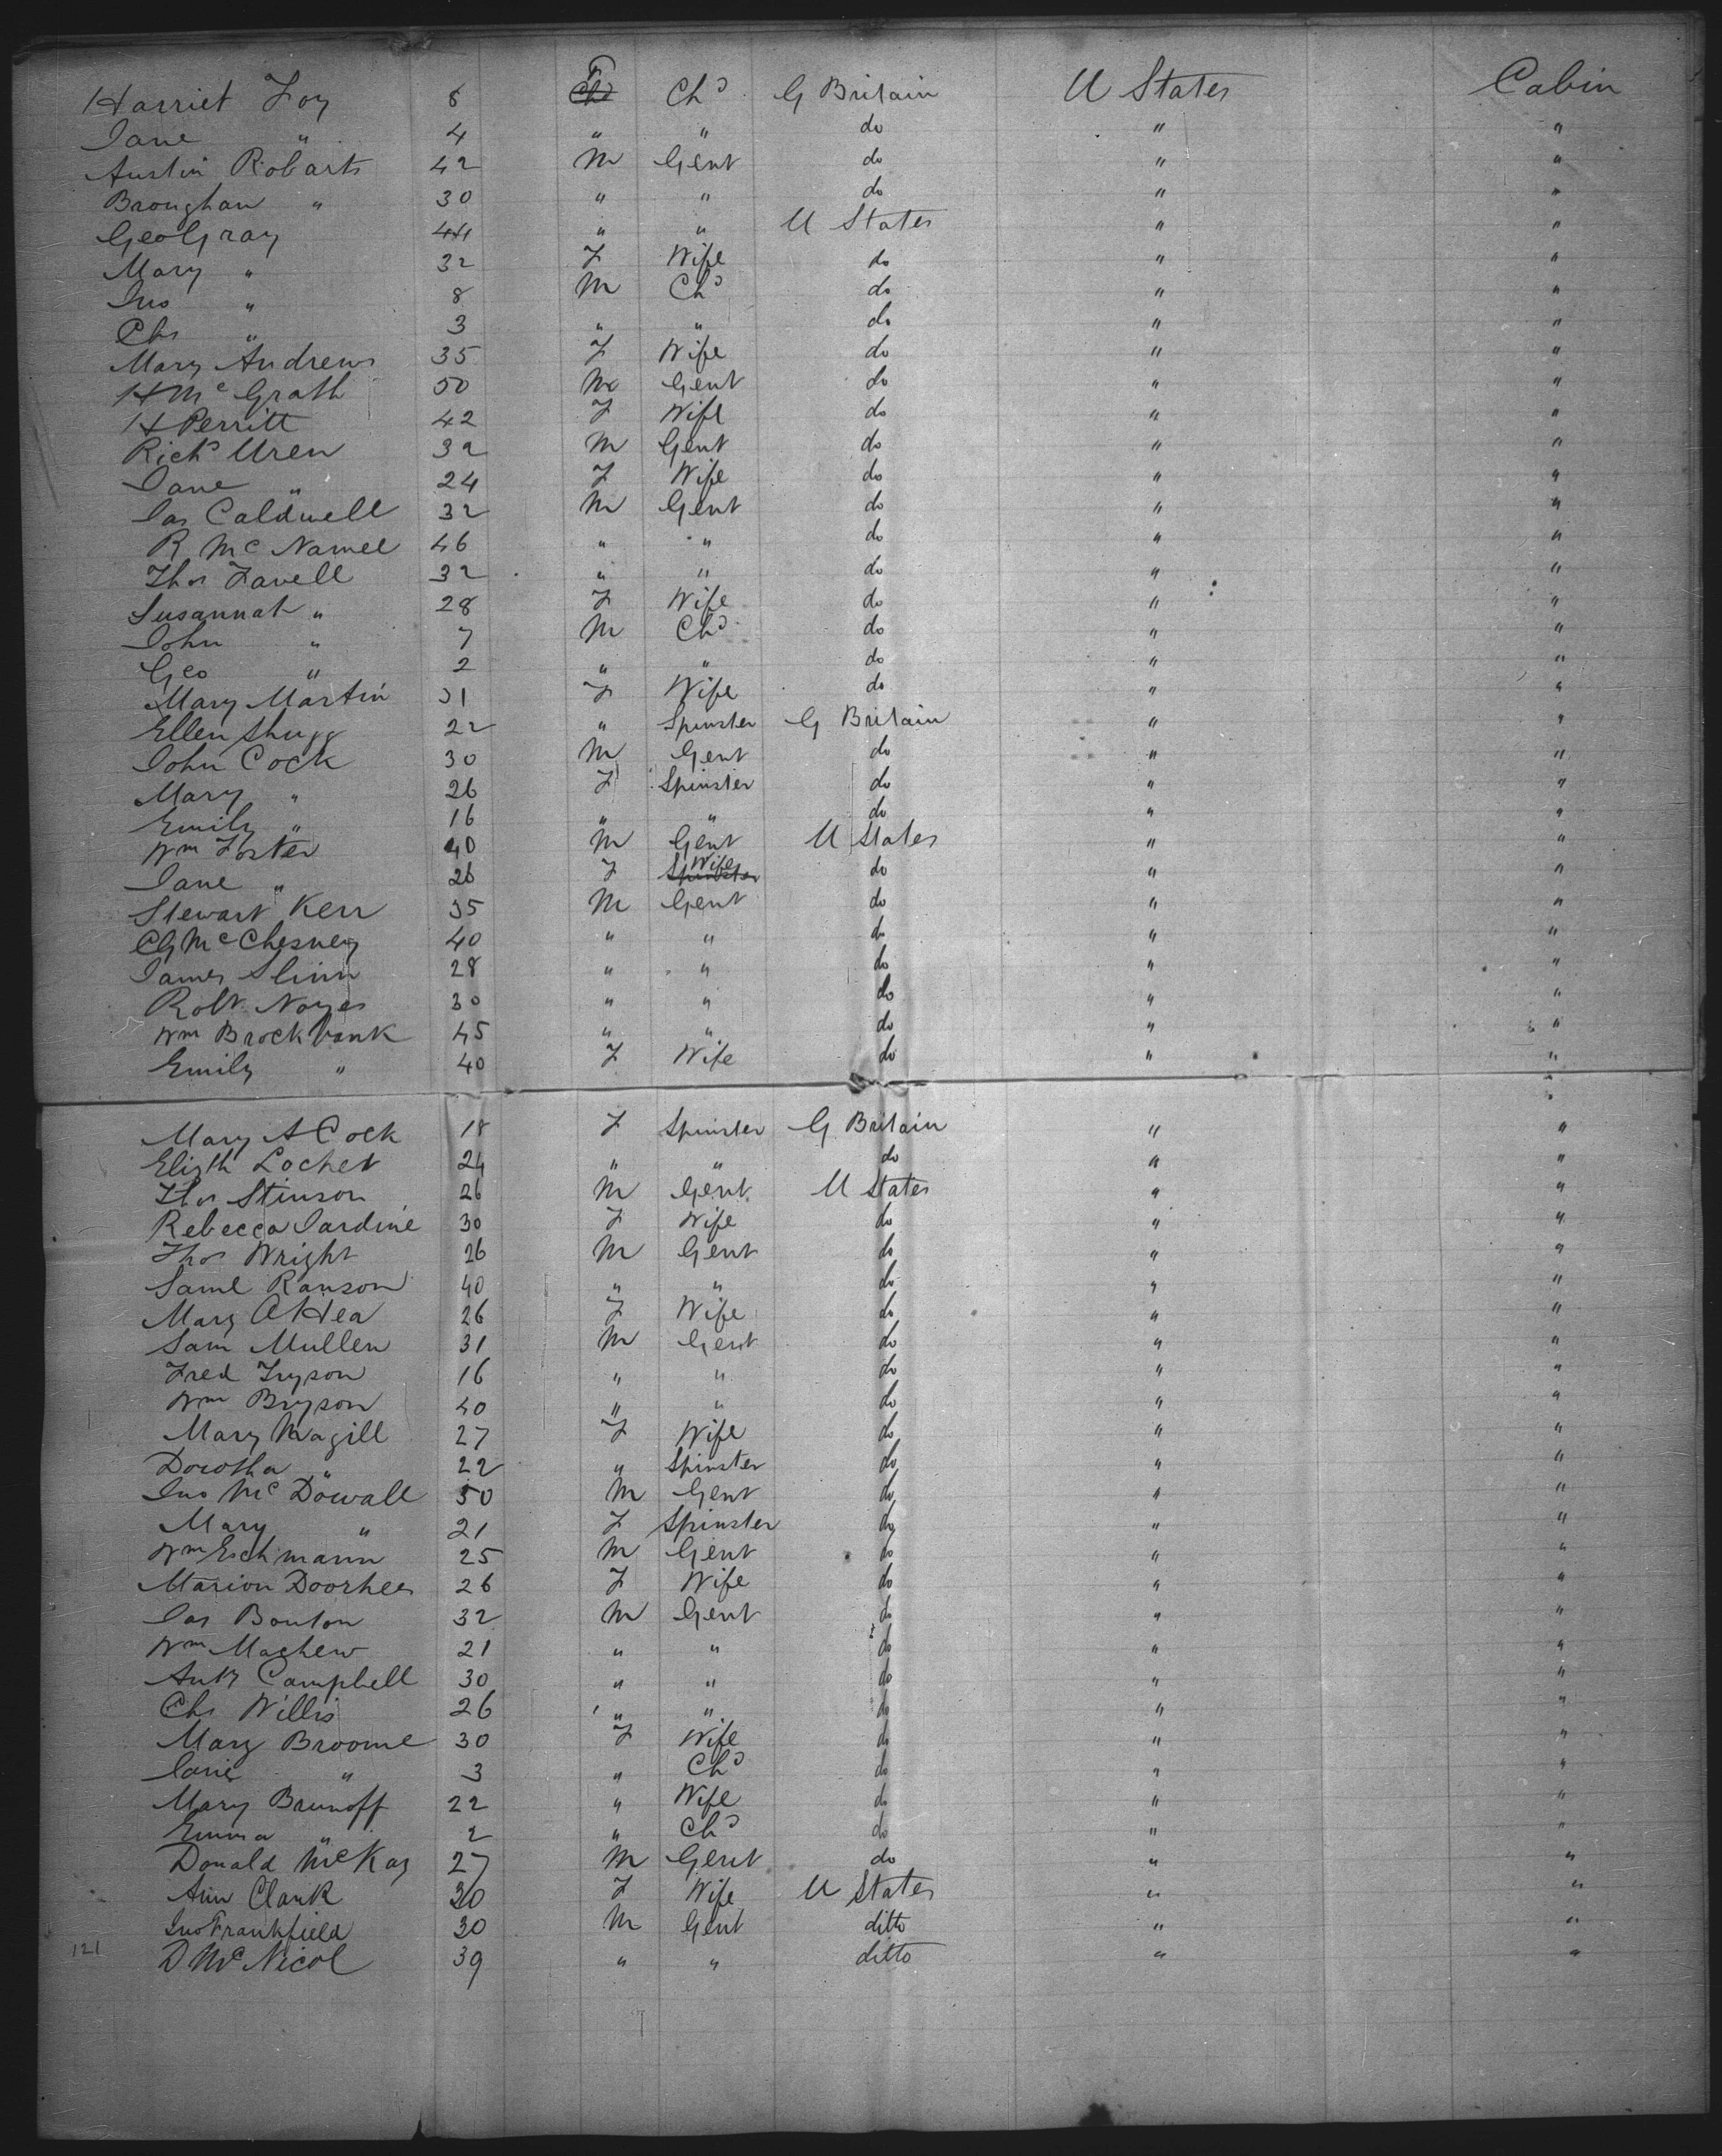 Harriet Foy 8 F Chd G Britain U States Cabin
Jane " 4 " " do " "
Austin Robarts 42 M Gent do " "
Broughan " 30 " " do " "
Geo Gray 44 " " U States " "
Mary " 32 F Wife do " "
Jno " 8 M Chd do " "
Chs " 3 " " do " "
Mary Andrews 35 F Wife do " "
H McGrath 50 M Gent do " "
H Perritt 42 F Wife do " "
Richd Uren 32 M Gent do " "
Jane " 24 F Wife do " "
Jas Caldwell 32 M Gent do " "
R McNamee 46 " " do " "
Thos Favell 32 " " do " "
Susannah " 28 F Wife do " "
John " 7 M Chd do " "
Geo " 2 " " do " "
Mary Martin 31 F Wife do " "
Ellen Shugg 22 " Spinster G Britain " "
John Cock 30 M Gent do " "
Mary " 26 F Spinster do " "
Emily " 16 " " do " "
Wm Foster 40 M Gent U States " "
Jane " 26 F Wife do " "
Stewart Kerr 35 M Gent do " "
CG McChesney 40 " " do " "
James Slinn 28 " " do " "
Robt Noyes 30 " " do " "
Wm Brockbank 45 " " do " "
Emily " 40 F Wife do " "
Mary A Cock 18 F Spinster G Britain " "
Elizth Lochet 24 " " do " "
Thos Stinson 26 M Gent U States " "
Rebecca Jardine 30 F Wife do " "
Thos Wright 26 M Gent do " "
Saml Ranson 40 " " do " "
Mary O'Hea 26 F Wife do " "
Sam Mullen 31 M Gent do " "
Fred Fryson 16 " " do " "
Wm Bryson 40 " " do " "
Mary Magill 27 F Wife do " "
Dorotha " 22 " Spinster do " "
Jno McDowall 50 M Gent do " "
Mary " 21 F Spinster do " "
Wm Eichmann 25 M Gent do " "
Marion Doorhees 26 F Wife do " "
Jas Bouton 32 M Gent do " "
Wm Machew 21 " " do " "
Anty Campbell 30 " " do " "
Chs Willis 26 " " do " "
Mary Broome 30 F Wife do " "
Janie " 3 " Chd do " "
Mary Brunoff 22 " Wife do " "
Emma " 2 " Chd do " "
Donald McKay 27 M Gent do " "
Ann Clark 30 F Wife U States " "
Jno Frankfield 30 M Gent ditto " "
121 D McNicol 39 " " ditto " "